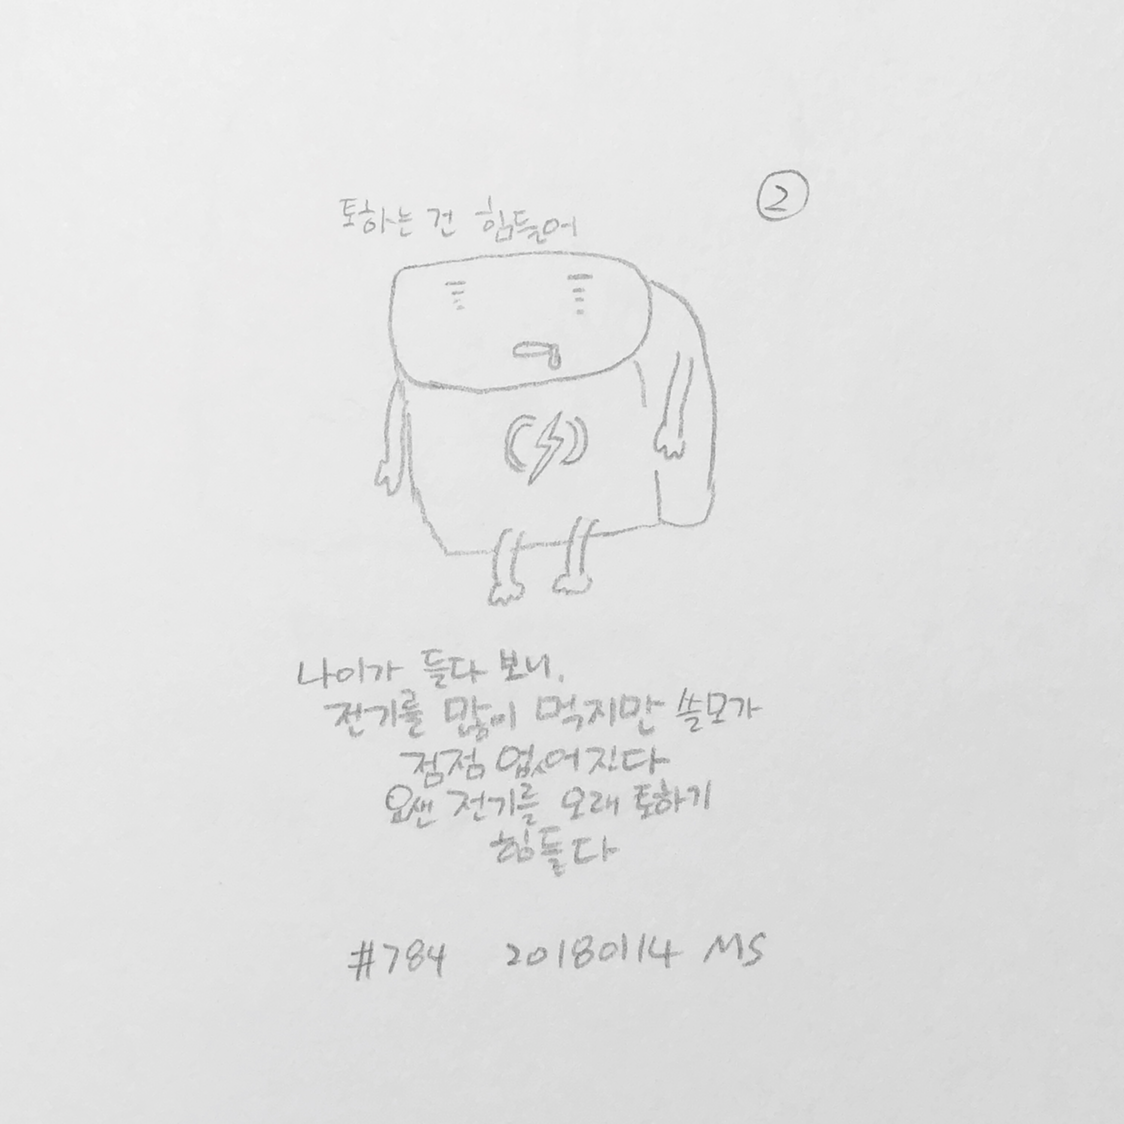 ②
토하는 건 힘들어
나이가 들다 보니,
전기를 많이 먹지만 쓸모가
점점 없어진다
요샌 전기를 오래 토하기
힘들다
#784 20180114 MS